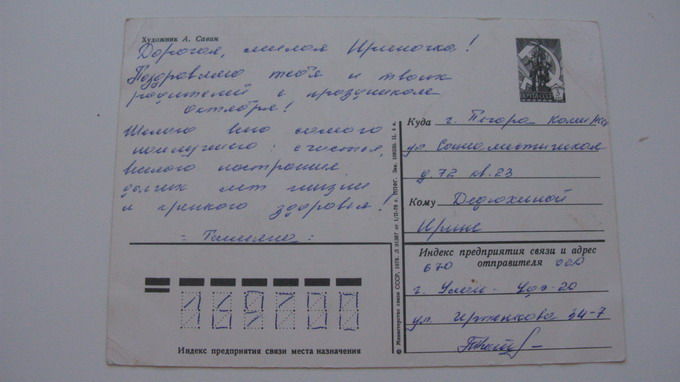 Художник А. Савин
Дорогая, милая Ириночка!
Поздравляю тебя и твоих
родителей с праздником
октября!
Желаю вам самого
наилучшего: счастья,
весёлого настроения,
долгих лет жизни
и крепкого здоровья!
= Татьяна =
Куда г. Печора Коми
ул Социалистическая
д. 72 кв. 23
Кому Дедюхиной
Ирине
Индекс предприятия связи и адрес
отправителя
670 000
г. Улан-Удэ-20
ул. 34-7
169700
Индекс предприятия связи места назначения
© Министерство связи СССР, 1978.